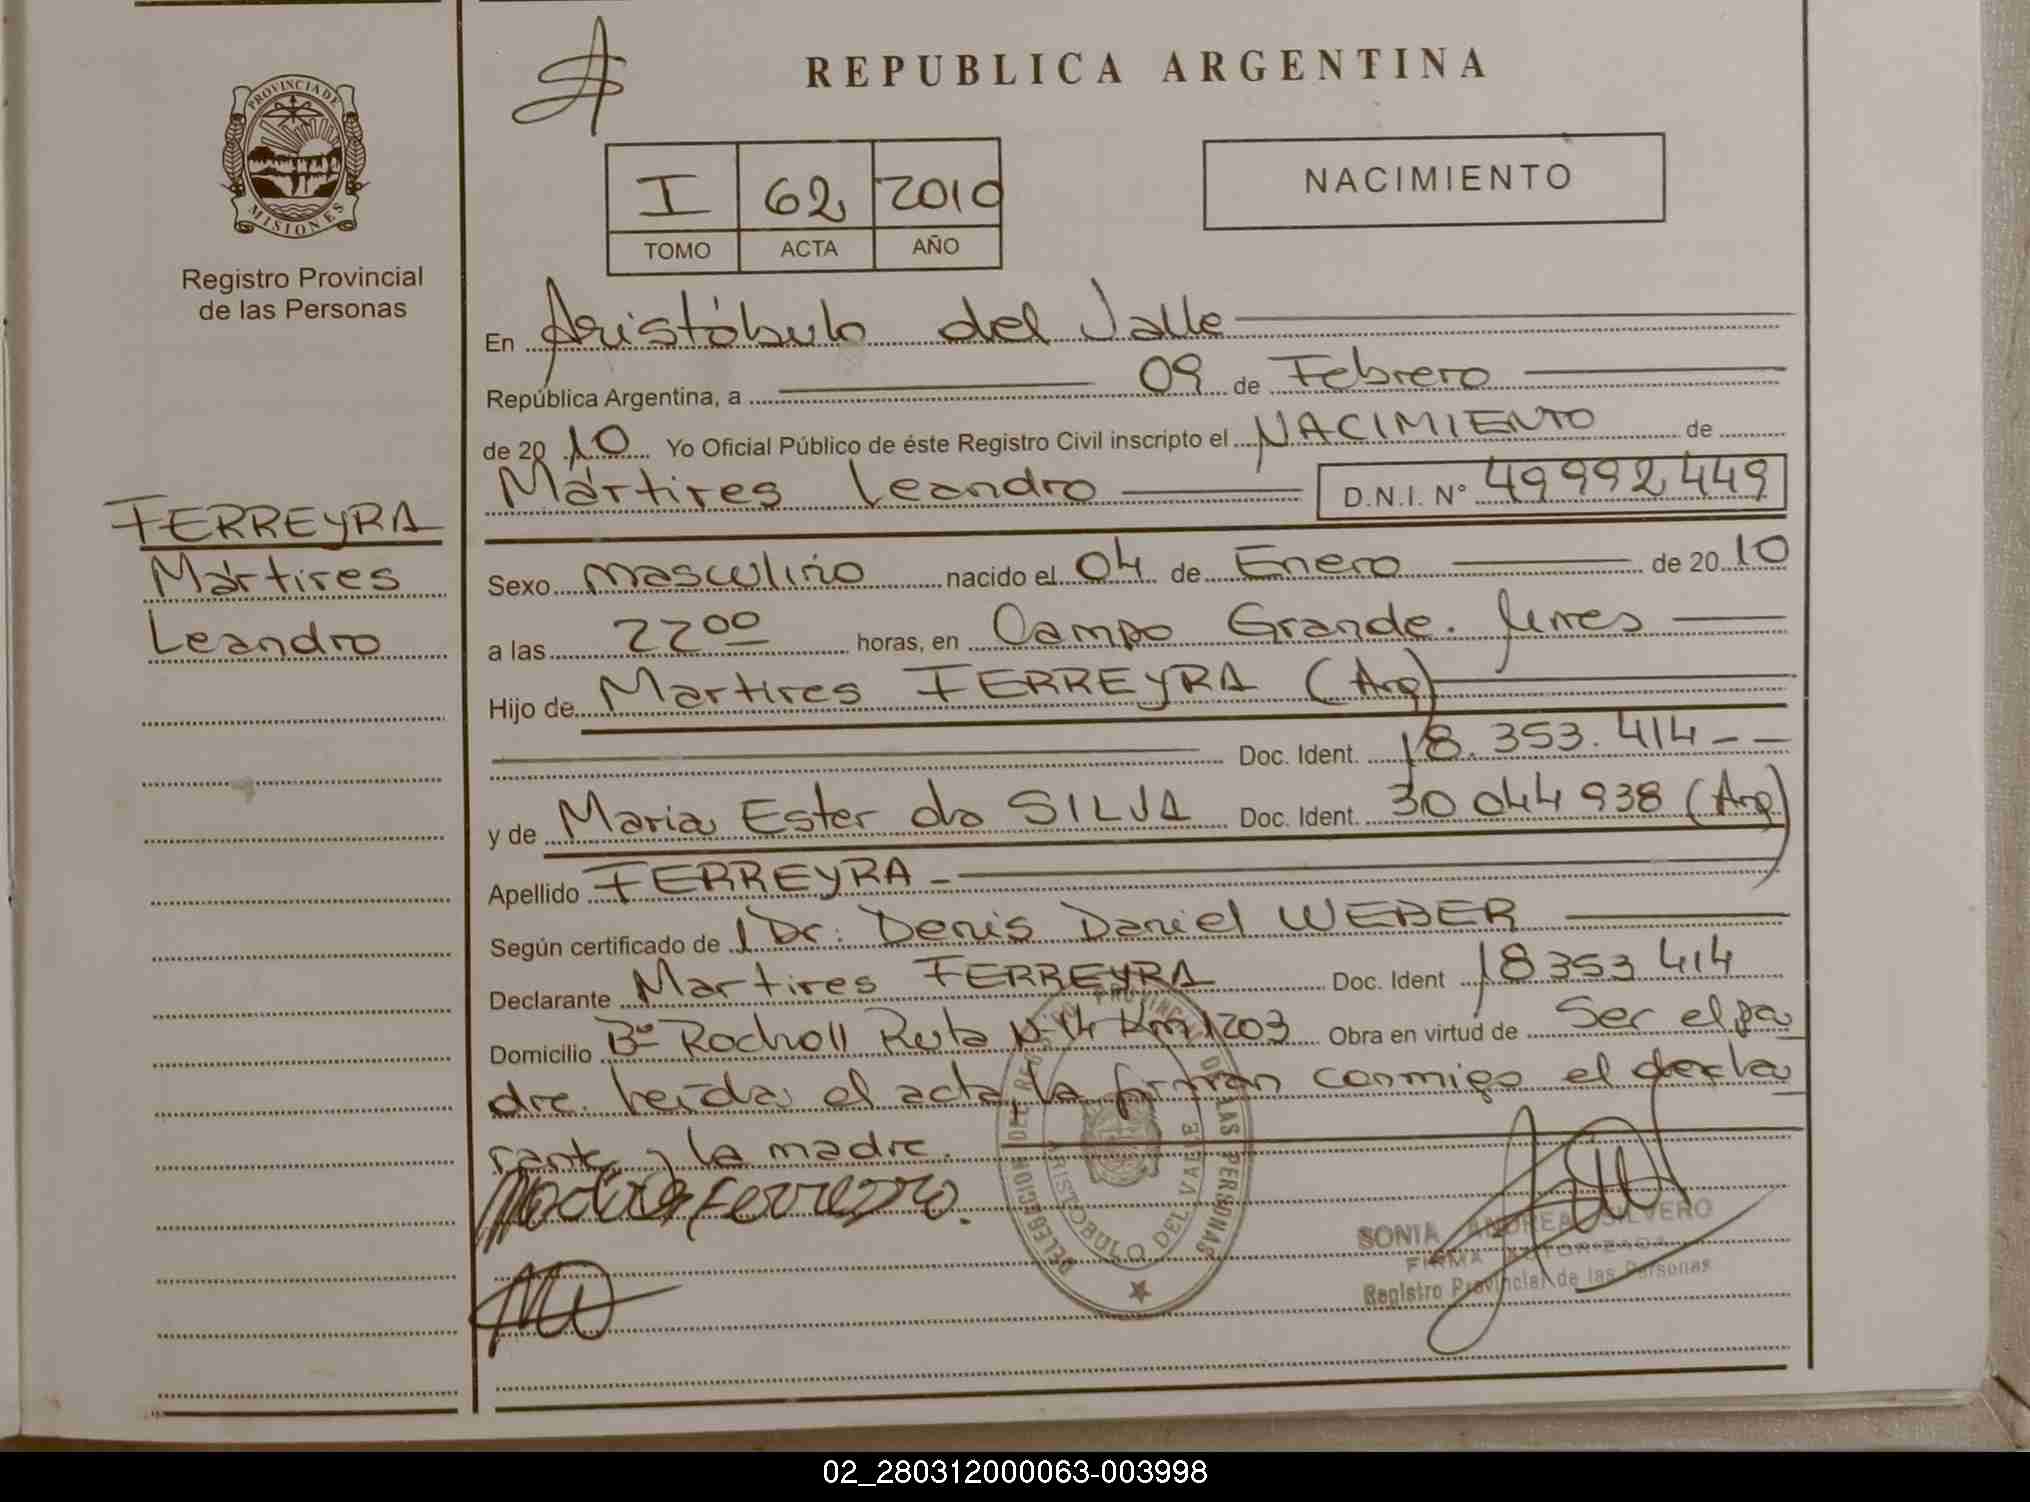 REPUBLICA ARGENTINA
PROVINCIA DE
MISIONES
Registro Provincial
de las Personas
I 62 2010
TOMO ACTA AÑO
NACIMIENTO
En Aristóbulo del Valle
República Argentina, a 09 de Febrero
de 20 10 Yo Oficial Público de éste Registro Civil inscripto el NACIMIENTO de
Mártires Leandro D.N.I. N° 49992449
FERREYRA
Mártires
Leandro
Sexo masculino nacido el 04 de Enero de 20 10
a las 22 00 horas, en Campo Grande.
Hijo de Martires FERREYRA (Arg)
Doc. Ident. 18.353.414--
y de Maria Ester da SILVA Doc. Ident. 30 044 938 (Arg)
Apellido FERREYRA -
Según certificado de Dr. Denis Daniel WEBER
Declarante Martires FERREYRA Doc. Ident 18353 414
Domicilio Bº Rocholl Ruta N 14 Km 1203 Obra en virtud de Ser el pa
dre. Leída el acta, la firman conmigo el decla
rante y la madre.
DELEGACION DEL REGISTRO PROVINCIAL DE LAS PERSONAS
ARISTOBULO DEL VALLE
SONIA ANDREA SILVERO
FIRMA AUTORIZADA
Registro Provincial de las Personas
02_280312000063-003998